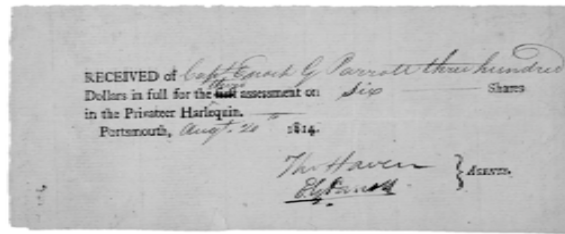 RECEIVED of Capt. Enoch G Parrott three hundred
Dollars in full for the first assessment on six Shares
in the Privateer Harlequin.
Portsmouth, Augt. 20th 1814.
Tho Haven
E G Parrott
} AGENTS.